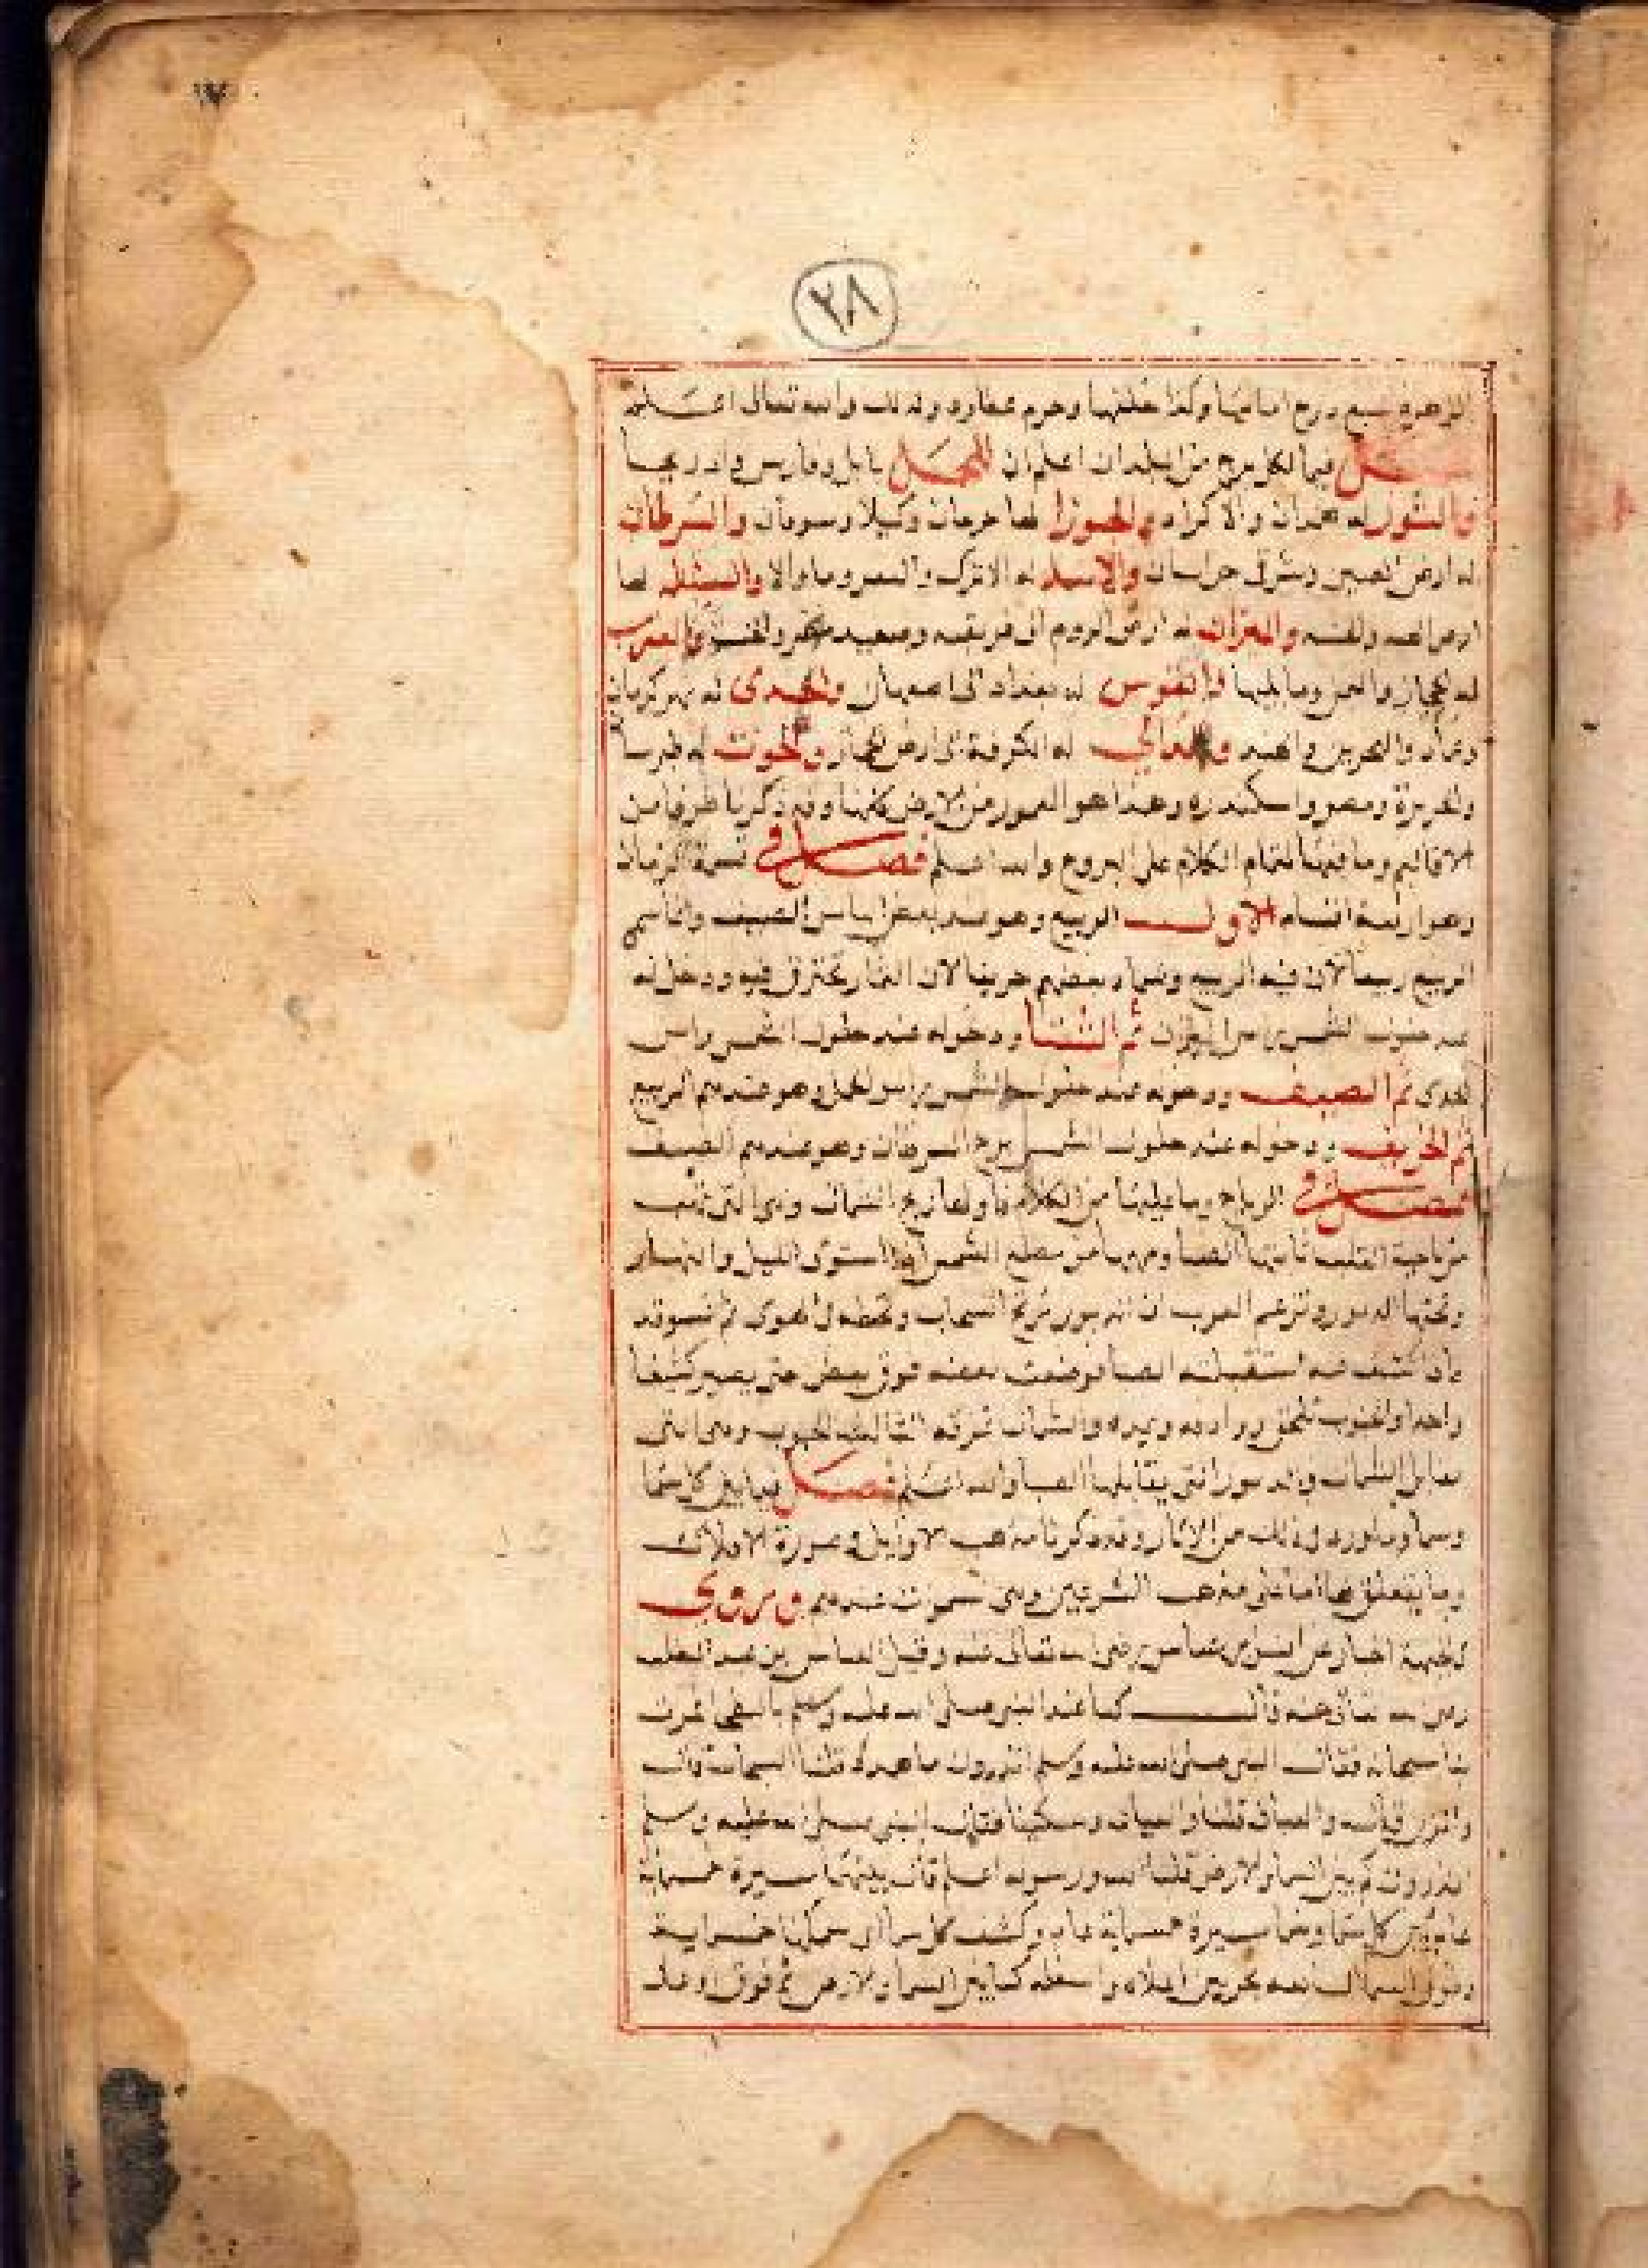 ٢٨
الزهرة سبع درج امامها وكذا خلفها وجرم عطارد كذلك والله تعالى اعلم
فصل فيما لكل برج من البلدان اعلم ان للحمل بابل وفارس واذربيجا
والثور له همدان والاكراد والجوزا لها جرجان وكيلان وموقان والسرطان
له ارض الصين وشرق خراسان والاسد له الاترك والصعر وما والا والسنبله لها
والميزان له ارض الروم الى فريقيه وصعيد مصر والعقرب
له الحجاز واليمن وما يليها والقوس له بغداد الى اصبهان والجدى له نهر كرمان
وعمان والبحرين والهند والدالي له الكوفة الى ارض الحجاز والحوت له طبرسا
والجزيرة ومصر واسكندريه وهذا هو المعمور من الارض كلها وقد ذكرنا طرفا من
الاقاليم وما فيها لتمام الكلام على البروج والله اعلم فصل في قسمة الزمان
وهو اربعة اقسام الاول الربيع وهو عند بعض الناس الصيف وانما سمي
الربيع ربيعا لان فيه الربيع وسماه بعضهم خريفا لان الثمار تخترق فيه ودخوله
عند حلول الشمس براس الميزان ثم الشتا ودخوله عند حلول الشمس راس
الجدى ثم الصيف ودخوله عند حلول الشمس براس الحمل وهو عندهم الربيع
ثم الخريف ودخوله عند حلول الشمس برج السرطان وهو عندهم الصيف
فصل في الرياح وما يليها من الكلام فاولها ريح الشمال وهي التي تهب
من ناحية القطب ثانيها الصبا ومهبها من مطلع الشمس اذا استوى الليل والنهار
وتحتها الدبور وتزعم العرب ان الدبور تزعج السحاب وتحطه في الهوى ثم تسوقه
فاذا كشف عنه استقبلته الصبا فوضعت بعضه فوق بعض حتى يصير كثيفا
واحدا والجنوب تلحق روادفه وتمده والشمال تمزقه الثالثه الجنوب وهي التي
تقابل الشمال والدبور التي يقابلها الصبا والله اعلم فصل فيما بين كل سما
وسما وما ورد في ذلك من الاثار وقد ذكرنا مذهب الاوايل في صورة الافلاك
وما يتعلق بها اما على مذهب الشرعيين وهي سموات عندهم وروي
رضي الله تعالى عنه وقيل العباس بن عبد المطلب
رضي الله تعالى عنه قال كنا عند النبي صلى الله عليه وسلم
بنا سحابه فقال النبي صلى الله عليه وسلم اتدرون ما هذه قلنا السحاب قال
والمزن قلنا والعنان وسكتنا فقال النبي صلى الله عليه وسلم
اتدرون كم بين السما والارض قلنا الله ورسوله اعلم قال بينهما مسيرة خمسماية
عام وبين كل سما وسما مسيرة خمسماية عام وكشف كل سما
وفوق السما السابعه بحر بين اعلاه واسفله كما بين السما والارض ثم فوق